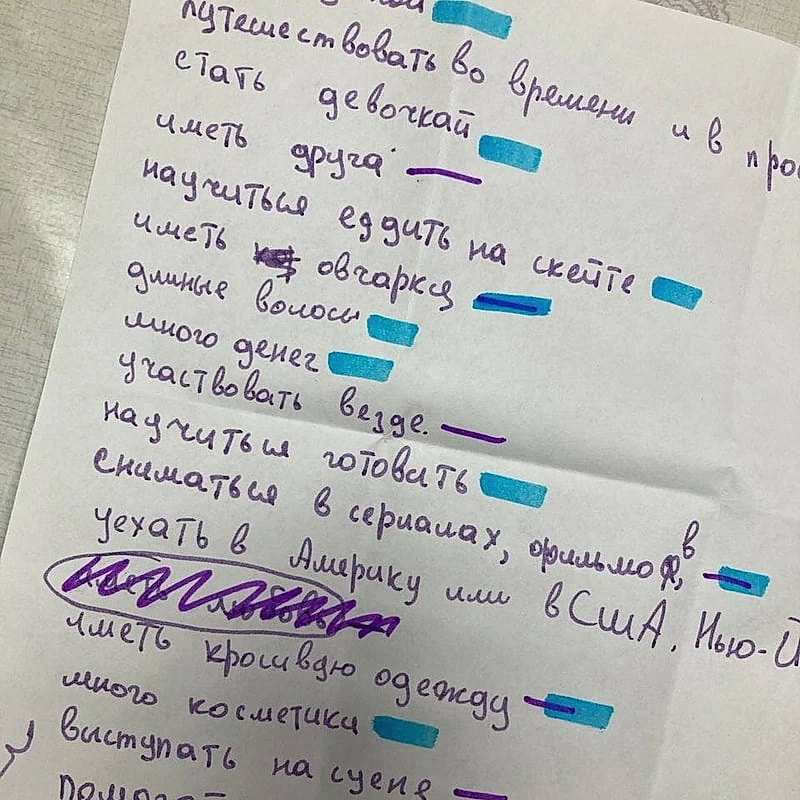 путешествовать во времени и в
стать девочкай
иметь друга
научиться еддить на скейте
иметь овчарку
длиные волосы
много денег
участвовать везде.
научиться готовить
сниматься в сериалах, фильмов,
уехать в Америку или в США. Нью-Й
иметь кросивую одежду
много косметики
выступать на сцене